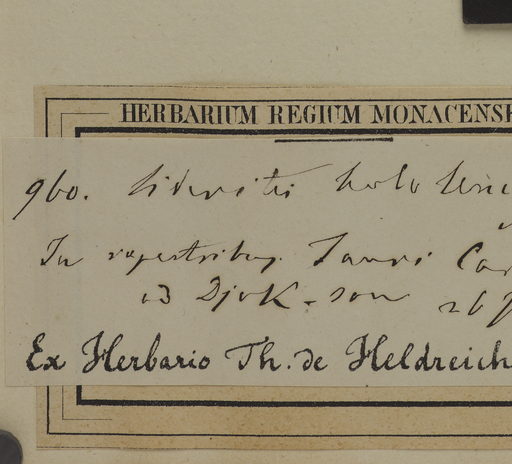 HERBARIUM REGIUM MONACENSE
960. Sideritis
In rupestribus Tauri Car
ad Djok-sou 26
Ex Herbario Th. de Heldreich